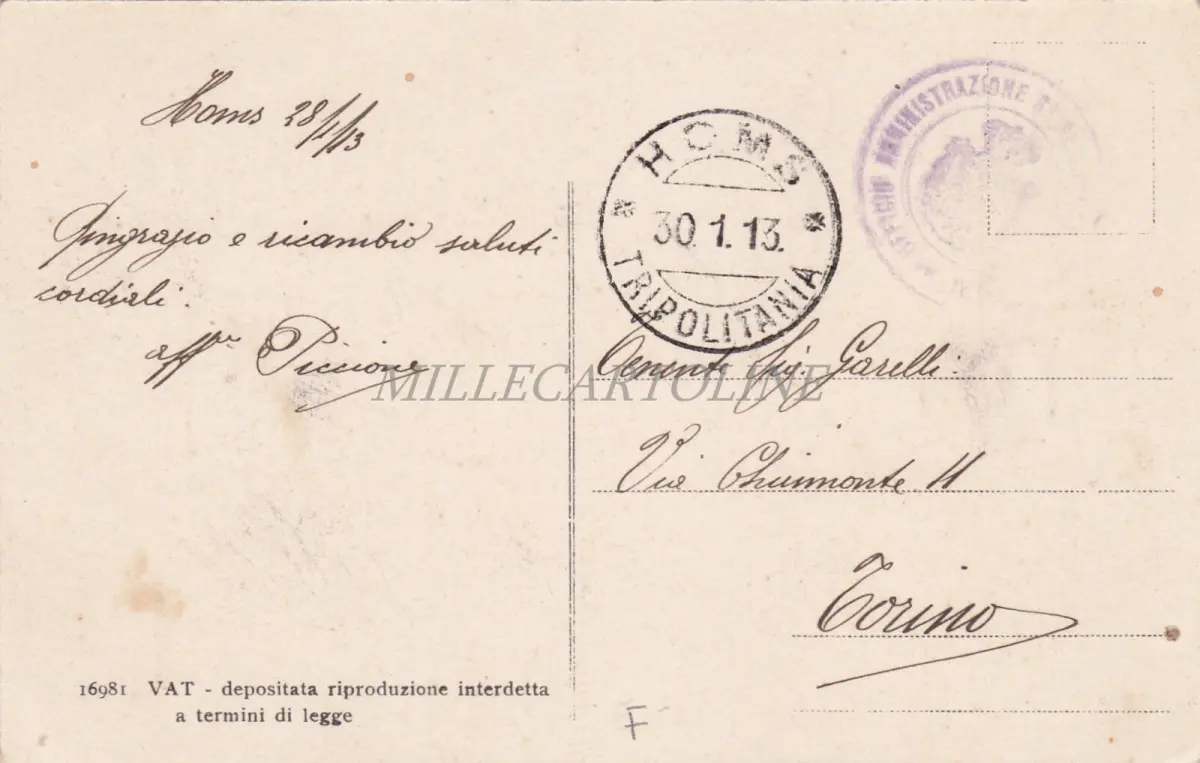 Homs 28/1/13
Ringrazio e ricambio saluti
cordiali.
aff.mo Piccione
16981 VAT - depositata riproduzione interdetta
a termini di legge
HOMS
30.1.13.
TRIPOLITANIA
UFFICIO AMMINISTRAZIONE
MILLECARTOLINE
Tenente Sig. Garelli.
Via Chiomonte 11
Torino
F